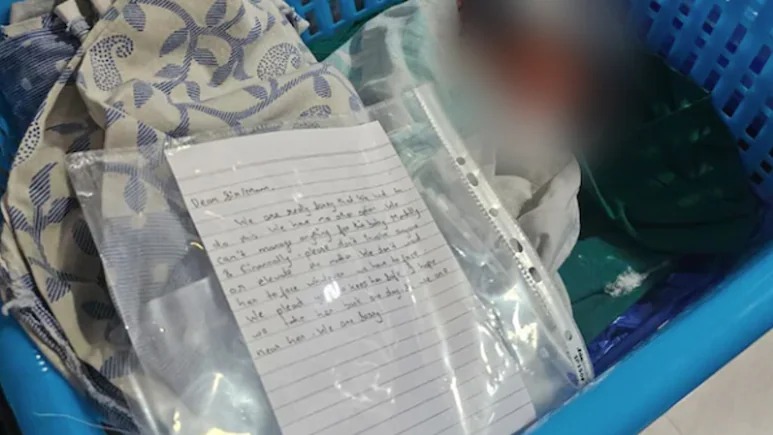 Dear Sir/Mam,
We are really sorry that we had to
do this. We have no other option. We
can't manage anything for the baby. Mentally
& Financially. please don't involve anyone
or elevate this matter. We don't want
her to face whatever we have to face.
We plead you keep her safe. I hope
we take her back one day. we are
near her. We are sorry